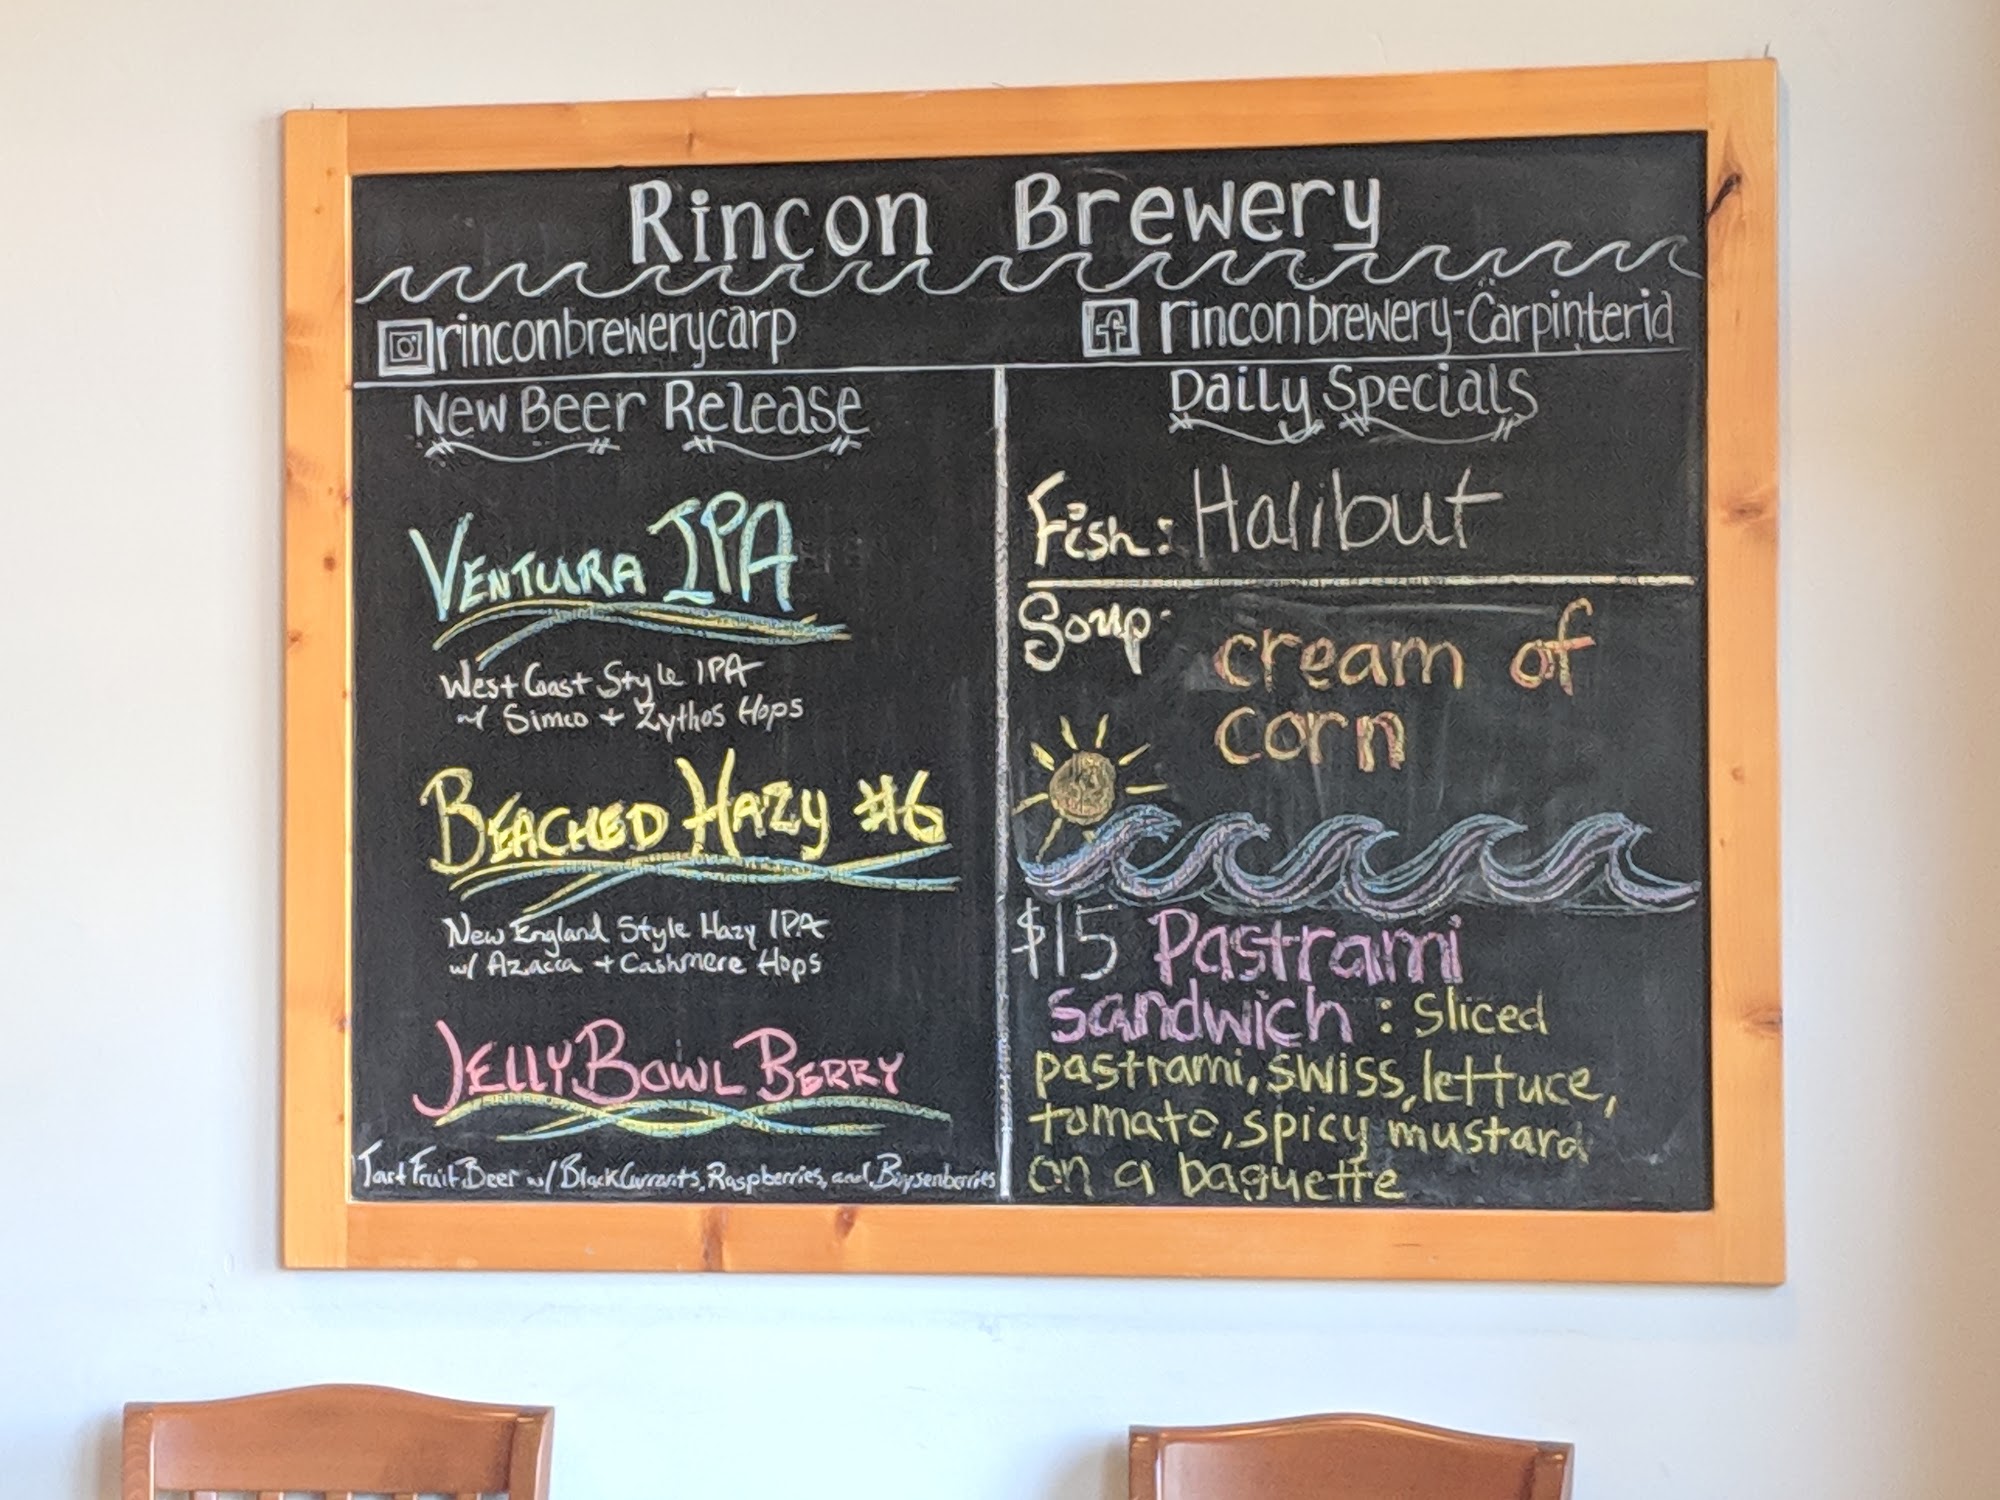 Rincon Brewery
rinconbrewerycarp
rinconbrewery-Carpinteria
New Beer Release
Ventura IPA
West Coast Style IPA
w/ Simco + Zythos Hops
Beached Hazy #6
New England Style Hazy IPA
w/ Azacca + Cashmere Hops
Jelly Bowl Berry
Tart Fruit Beer w/ Black Currants, Raspberries, and Boysenberries
Daily Specials
Fish: Halibut
Soup: cream of
corn
$15 Pastrami
sandwich : sliced
pastrami, swiss, lettuce,
tomato, spicy mustard
on a baguette